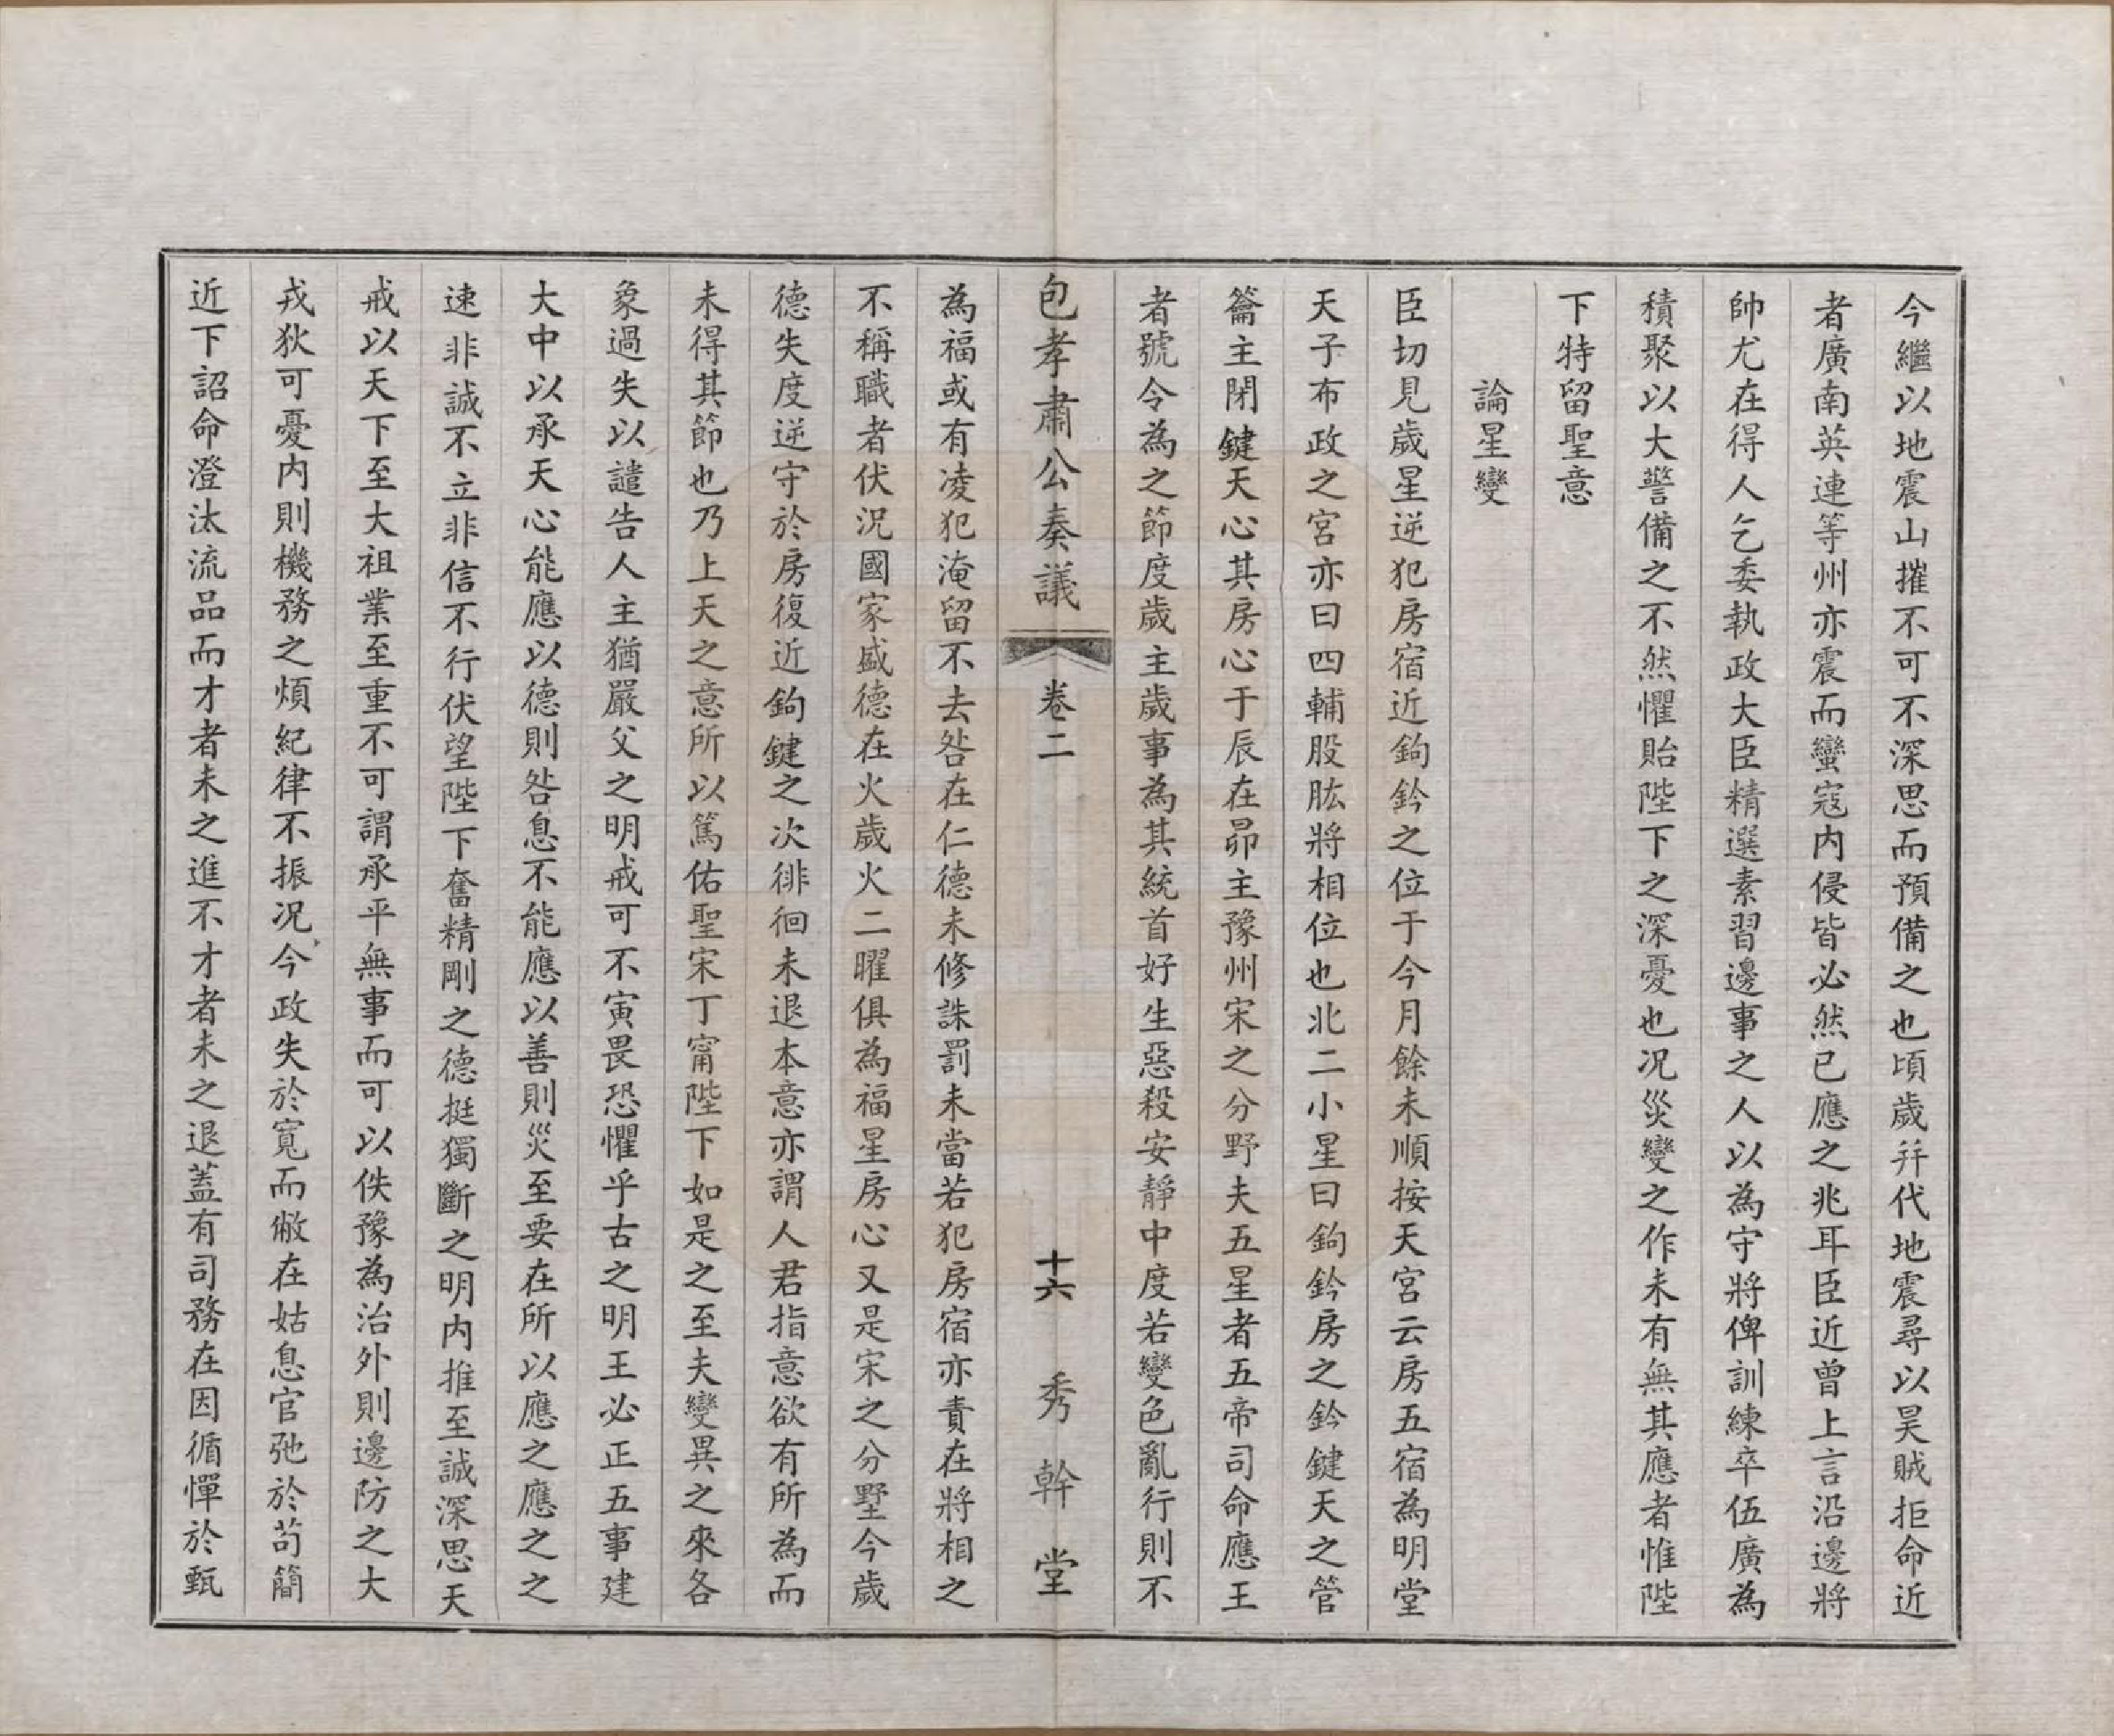 今繼以地震山摧不可不深思而預備之也頃歲幷代地震尋以昊賊拒命近
者廣南英連等州亦震而蠻寇内侵皆必然已應之兆耳臣近曾上言沿邊將
帥尤在得人乞委執政大臣精選素習邊事之人以為守將俾訓練卒伍廣為
積聚以大警備之不然懼貽陛下之深憂也况災變之作未有無其應者惟陛
下特留聖意
論星變
臣切見歲星逆犯房宿近鉤鈐之位于今月餘未順按天宮云房五宿為明堂
天子布政之宮亦曰四輔股肱將相位也北二小星曰鉤鈐房之鈐鍵天之管
籥主閉鍵天心其房心于辰在昴主豫州宋之分野夫五星者五帝司命應王
者號令為之節度歲主歲事為其統首好生惡殺安靜中度若變色亂行則不
包孝肅公奏議 卷二 十六 秀幹堂
為福或有凌犯淹留不去咎在仁德未修誅罰未當若犯房宿亦責在將相之
不稱職者伏況國家盛德在火歲火二曜俱為福星房心又是宋之分墅今歲
德失度逆守於房復近鉤鍵之次徘徊未退本意亦謂人君指意欲有所為而
未得其節也乃上天之意所以篤佑聖宋丁甯陛下如是之至夫變異之來各
象過失以譴告人主猶嚴父之明戒可不寅畏恐懼乎古之明王必正五事建
大中以承天心能應以德則咎息不能應以善則災至要在所以應之應之之
速非誠不立非信不行伏望陛下奮精剛之德挺獨斷之明内推至誠深思天
戒以天下至大祖業至重不可謂承平無事而可以佚豫為治外則邊防之大
戎狄可憂内則機務之煩紀律不振况今政失於寬而敝在姑息官弛於苟簡
近下詔命澄汰流品而才者未之進不才者未之退蓋有司務在因循憚於甄